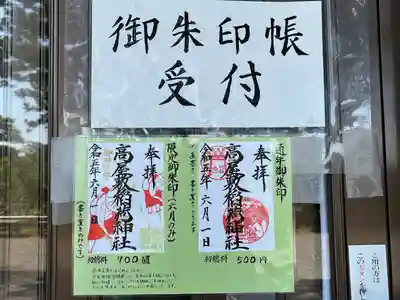 御朱印帳
受付
通年御朱印
奉拝
高屋敷稲荷神社
令和五年六月一日
初穂料 500円
限定御朱印(六月のみ)
奉拝
高屋敷稲荷神社
令和五年六月一日
(書き置きのみです)
初穂料 700圓
ご用の方は